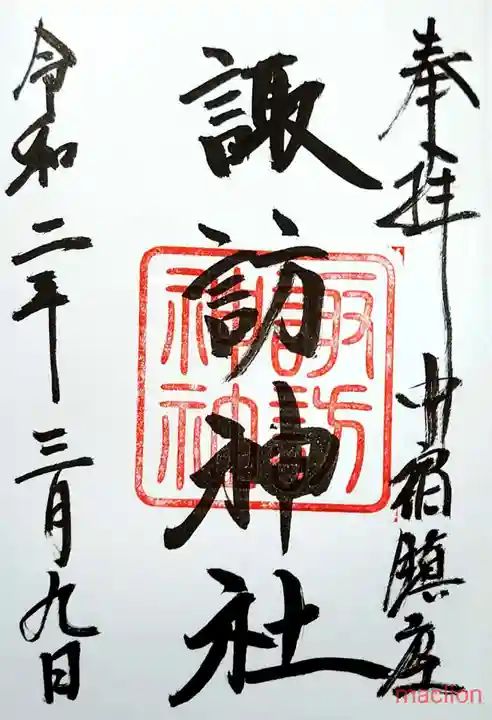 奉拝 廿宿鎮座
諏訪神社
諏訪神社
令和二年三月九日
maclion